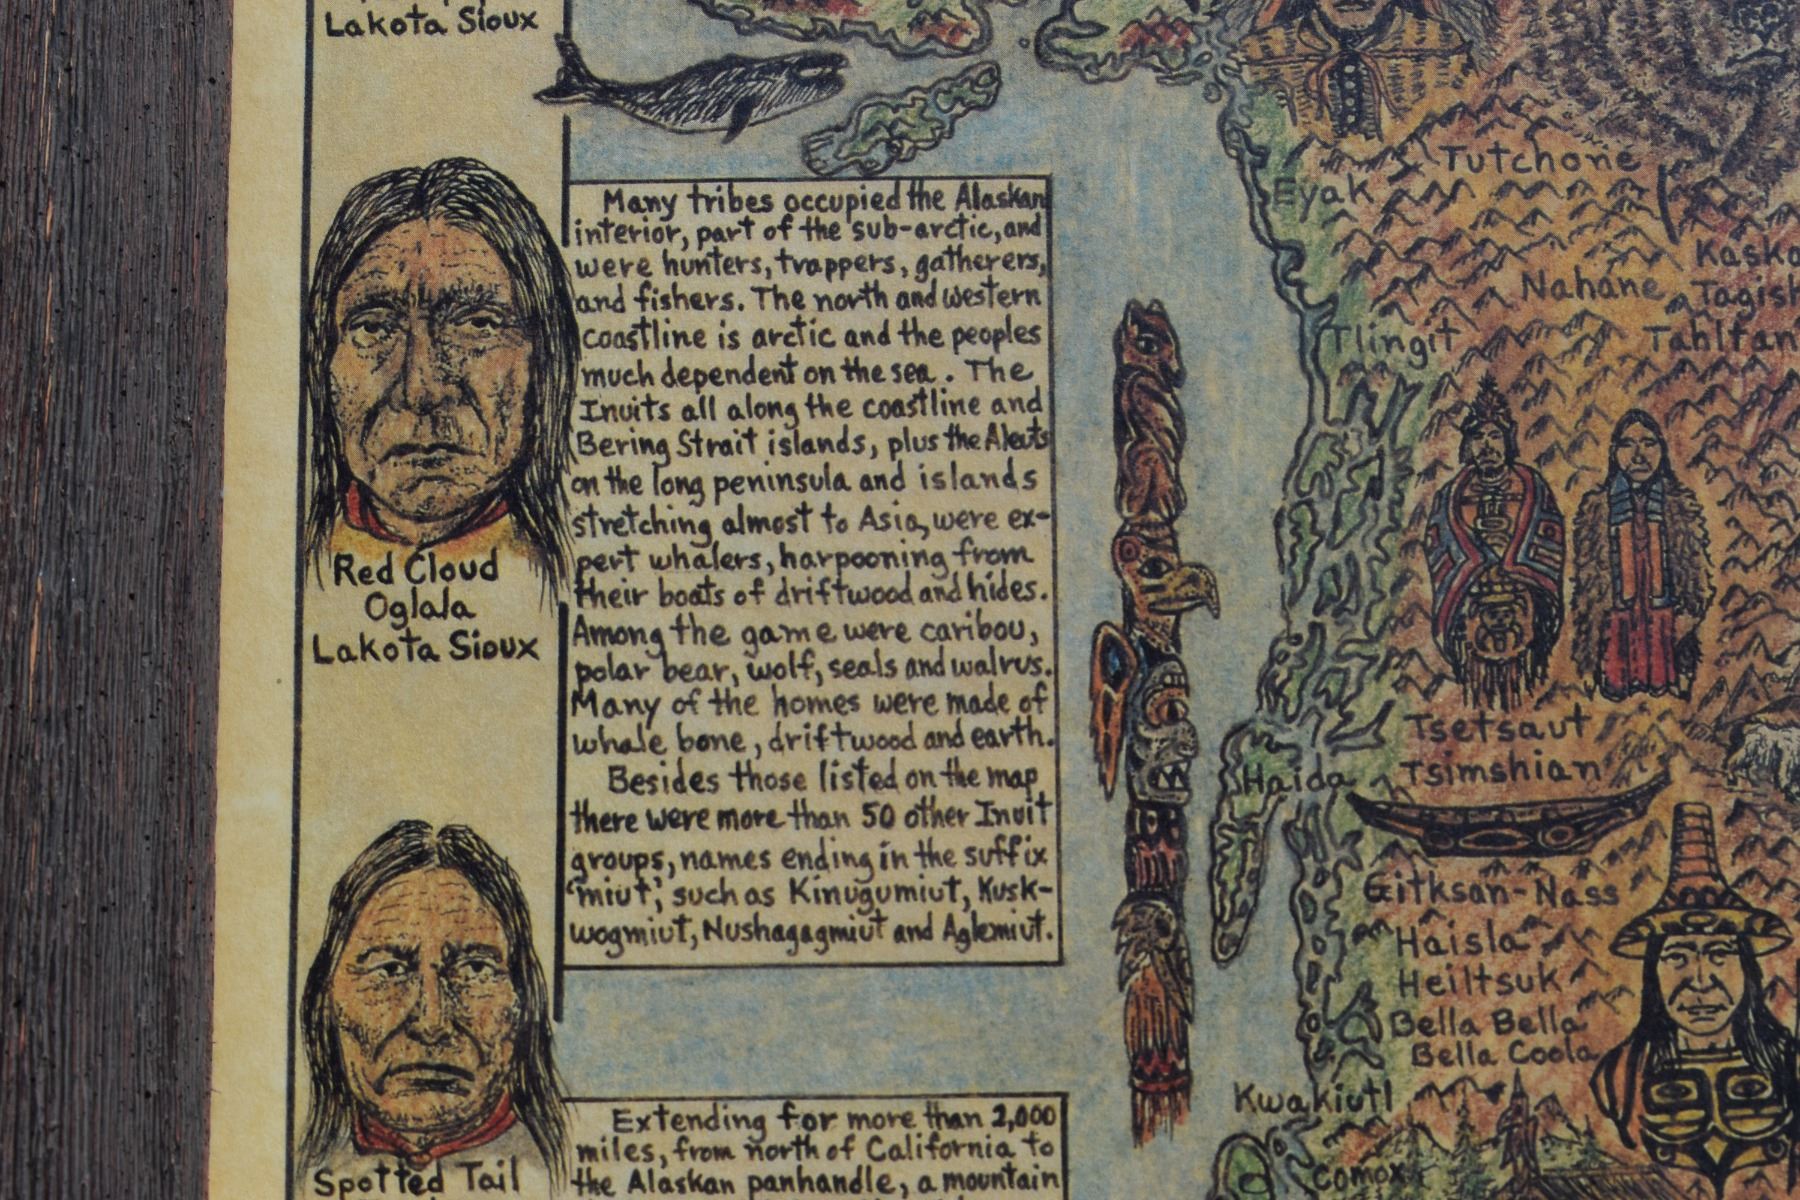 Lakota Sioux
Red Cloud
Oglala
Lakota Sioux
Spotted Tail
Many tribes occupied the Alaskan
interior, part of the sub-arctic, and
were hunters, trappers, gatherers,
and fishers. The north and western
coastline is arctic and the peoples
much dependent on the sea. The
Inuits all along the coastline and
Bering Strait islands, plus the Aleuts
on the long peninsula and islands
stretching almost to Asia, were ex-
pert whalers, harpooning from
their boats of driftwood and hides.
Among the game were caribou,
polar bear, wolf, seals and walrus.
Many of the homes were made of
whale bone, driftwood and earth.
Besides those listed on the map
there were more than 50 other Inuit
groups, names ending in the suffix
'miut', such as Kinugumiut, Kusk-
wogmiut, Nushagagmiut and Aglemiut.
Extending for more than 2,000
miles, from north of California to
the Alaskan panhandle, a mountain
Tutchone
Eyak
Kaska
Nahane
Tagish
Tlingit
Tahltan
Tsetsaut
Tsimshian
Haida
Gitksan-Nass
Haisla
Heiltsuk
Bella Bella
Bella Coola
Kwakiutl
Comox